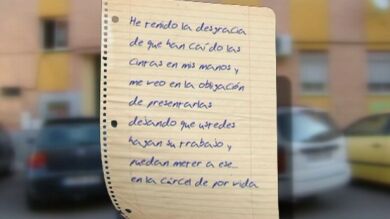 He tenido la desgracia
de que han caído las
cintas en mis manos y
me veo en la obligación
de presentarlas
dejando que ustedes
hagan su trabajo y
puedan meter a ese...
en la cárcel de por vida